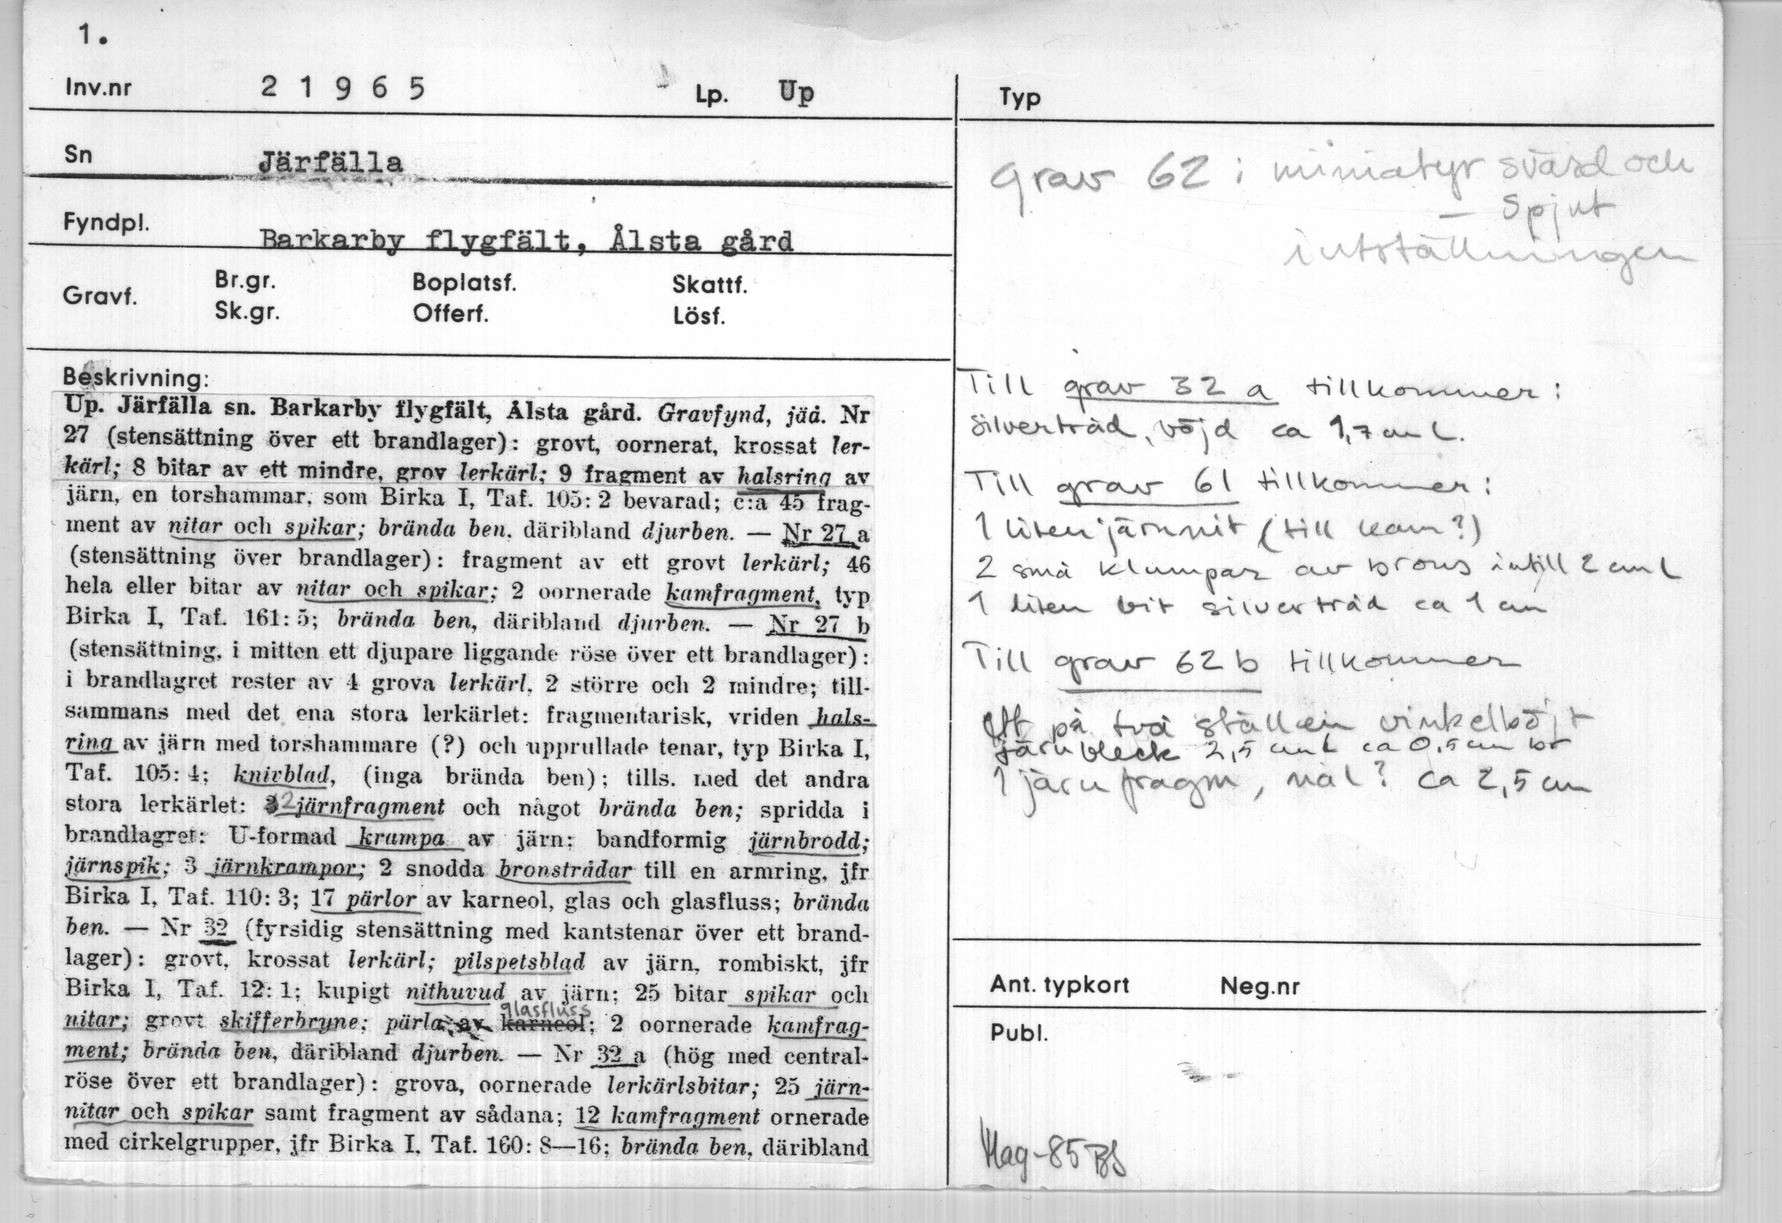 1.
Inv.nr 2 1 9 6 5 Lp. Up
Sn Järfälla
Fyndpl. Barkarby flygfält, Ålsta gård
Gravf. Br.gr. Boplatsf. Skattf.
Sk.gr. Offerf. Lösf.
Beskrivning:
Up. Järfälla sn. Barkarby flygfält, Ålsta gård. Gravfynd, jäå. Nr
27 (stensättning över ett brandlager): grovt, oornerat, krossat ler-
kärl; 8 bitar av ett mindre, grov lerkärl; 9 fragment av halsring av
järn, en torshammar, som Birka I, Taf. 105: 2 bevarad; c:a 45 frag-
ment av nitar och spikar; brända ben, däribland djurben. — Nr 27 a
(stensättning över brandlager): fragment av ett grovt lerkärl; 46
hela eller bitar av nitar och spikar; 2 oornerade kamfragment, typ
Birka I, Taf. 161: 5; brända ben, däribland djurben. — Nr 27 b
(stensättning, i mitten ett djupare liggande röse över ett brandlager):
i brandlagret rester av 4 grova lerkärl, 2 större och 2 mindre; till-
sammans med det ena stora lerkärlet: fragmentarisk, vriden hals-
ring av järn med torshammare (?) och upprullade tenar, typ Birka I,
Taf. 105: 4; knivblad, (inga brända ben); tills. med det andra
stora lerkärlet: 2 järnfragment och något brända ben; spridda i
brandlagret: U-formad krampa av järn; bandformig järnbrodd;
järnspik; 3 järnkrampor; 2 snodda bronstrådar till en armring, jfr
Birka I, Taf. 110: 3; 17 pärlor av karneol, glas och glasfluss; brända
ben. — Nr 32 (fyrsidig stensättning med kantstenar över ett brand-
lager): grovt, krossat lerkärl; pilspetsblad av järn, rombiskt, jfr
Birka I, Taf. 12: 1; kupigt nithuvud av järn; 25 bitar spikar och
glasfluss
nitar; grovt skifferbryne; pärla av karneol; 2 oornerade kamfrag-
ment; brända ben, däribland djurben. — Nr 32 a (hög med central-
röse över ett brandlager): grova, oornerade lerkärlsbitar; 25 järn-
nitar och spikar samt fragment av sådana; 12 kamfragment ornerade
med cirkelgrupper, jfr Birka I, Taf. 160: 8—16; brända ben, däribland
Typ
Grav 62 : miniatyr svärd och
— spjut
i utställningen
Till grav 32 a tillkommer:
silvertråd, böjd ca 1,7 cm L.
Till grav 61 tillkommer:
1 liten järnnit (till kam?)
2 små klumpar av brons intill 2 cm L
1 liten bit silvertråd ca 1 cm
Till grav 62 b tillkommer
Ett på två ställen vinkelböjt
järnbleck 2,5 cm L ca 0,5 cm br
1 järnfragm, nål? ca 2,5 cm
Ant. typkort Neg.nr
Publ.
Mag-85